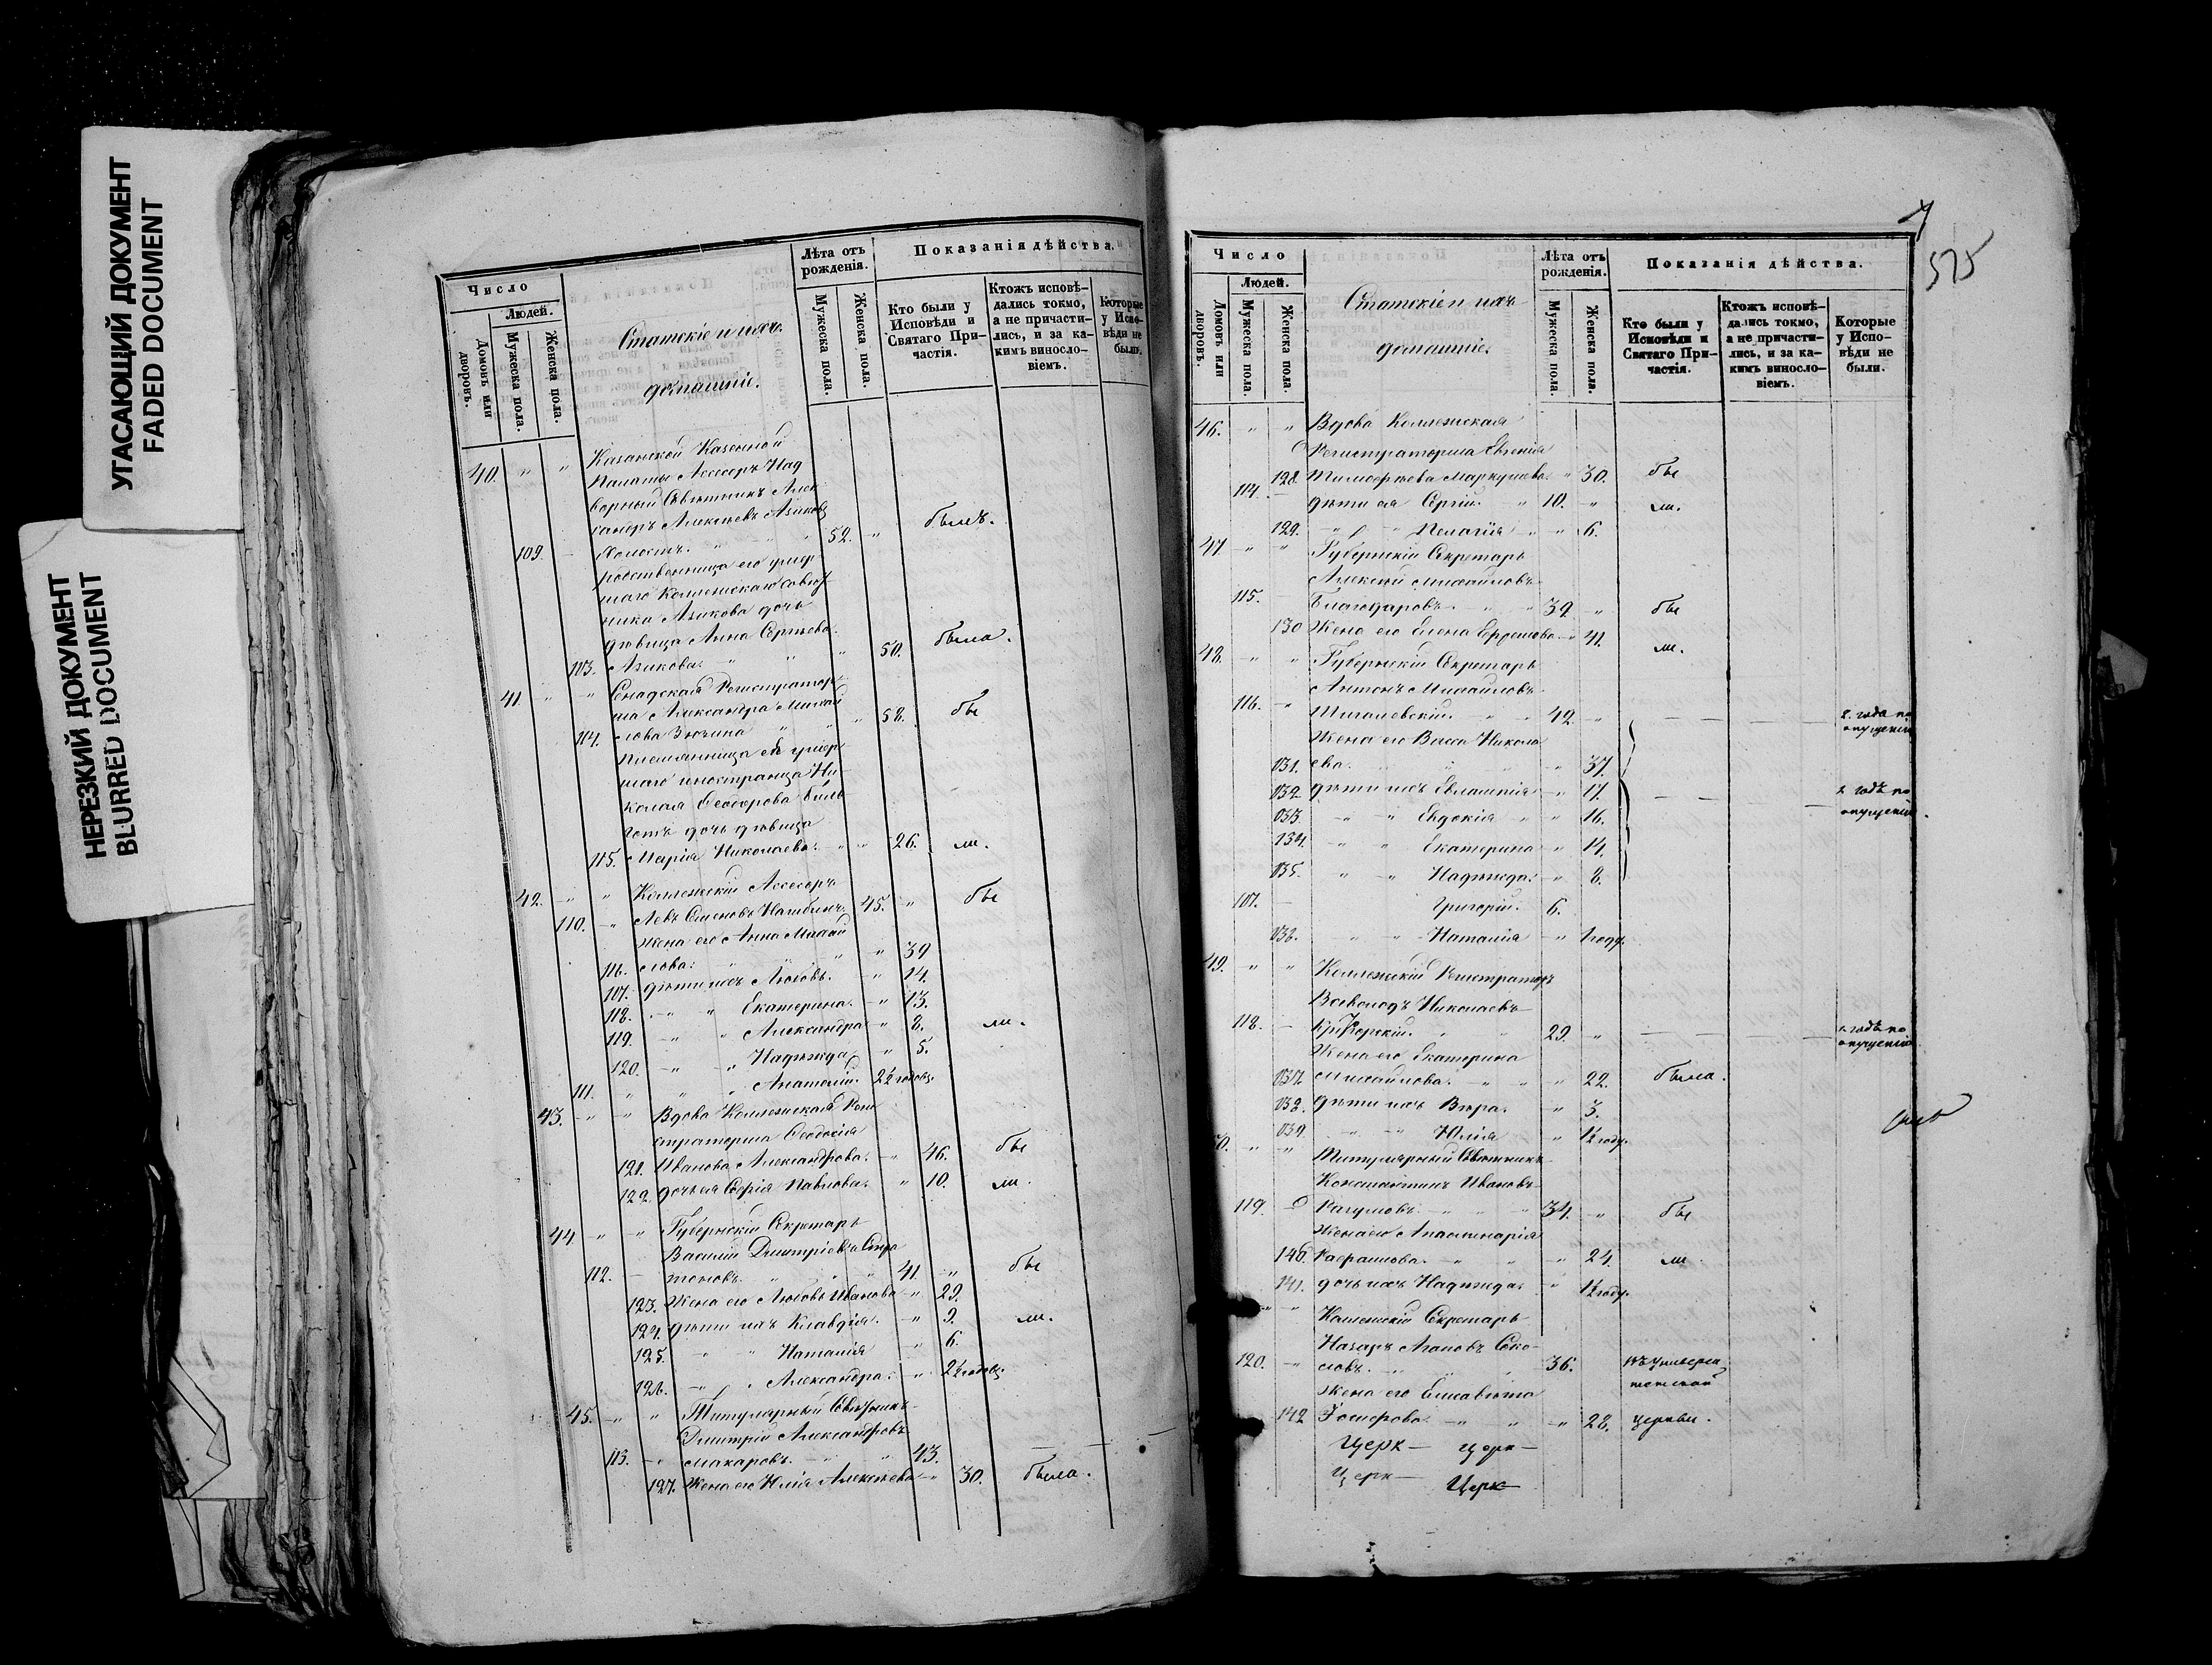 УГАСАЮЩИЙ ДОКУМЕНТ
FADED DOCUMENT
НЕРЕЗКИЙ ДОКУМЕНТ
BLURRED DOCUMENT
Число
Людей.
Домовъ или дворовъ.
Мужеска пола.
Женска пола.
Статскіе и ихъ
домашніе.
Лѣта отъ рожденія.
Мужеска пола.
Женска пола.
Показанія дѣйства.
Кто были у Исповѣди и Святаго Причастія.
Ктожъ исповѣдались токмо, а не причастились, и за какимъ винословіемъ.
Которые у Исповѣди не были.
40. " " Казанской Казенной
Палаты Ассесоръ Над
ворный Совѣтникъ Алек
сандръ Алексѣевъ Азіковъ
109. Холостъ. 52. " былъ.
родственница его умер
шаго Коллежскаго Совѣт
ника Азикова дочь
дѣвица Анна Сергѣева
113. Азикова. " 50. была.
41. " " Сенатская Регистратор
ша Александра Михай
114. лова Зюзина " 58. бы
племянница ея умер
шаго иностранца Ни
колая Ѳеодорова
дочь дѣвица
115. Марія Николаева. " 26. ли.
42. " " Коллежскій Ассесоръ
110. " Левъ Семеновъ 45. " бы
Жена его Анна Михай
116. лова. " 39
117. дѣти ихъ Любовь. " 14.
118. " " Екатерина. " 13.
119. " " Александра " 8. ли.
120. " " Надежда " 5.
111. " " Анатолій. 2½ годовъ.
43. " " Вдова Коллежская Реги
страторша Ѳеодосія
121. Иванова Александрова. " 46. бы
122. дочь ея Софія Павлова. " 10. ли.
44. " " Губернскій Секретарь
Василій Дмитріевъ
112. 41. " бы
123. Жена его Любовь Иванова " 29.
124. дѣти ихъ Клавдія. " 9. ли.
125. " " Наталія " 6.
126. " " Александра. " 2½ годовъ.
45. " " Титулярный Совѣтникъ
Дмитрій Александровъ
113. Макаровъ. 43.
127. Жена его Юлія Алексѣева " 30. была.
575
Число
Людей.
Домовъ или дворовъ.
Мужеска пола.
Женска пола.
Статскіе и ихъ
домашніе.
Лѣта отъ рожденія.
Мужеска пола.
Женска пола.
Показанія дѣйства.
Кто были у Исповѣди и Святаго Причастія.
Ктожъ исповѣдались токмо, а не причастились, и за какимъ винословіемъ.
Которые у Исповѣди не были.
46. " " Вдова Коллежская
Регистраторша Евгенія
128. Тимофѣева Маркушева " 30. бы
114. дѣти ея Сергій. 10. " ли.
129. " " Пелагія " 6.
47 " " Губернскій Секретарь
Алексѣй Михайловъ
115. Благодаровъ. 39. " бы
130 Жена его Елена " 41. ли.
48. " " Губернскій Секретарь
Антонъ Михайловъ
116. 42. " 2. года по
опущенію
Жена его Васса Никола
131. ева. " 37.
132 дѣти ихъ Евлампія " 17. 1 годъ по
133. " " Евдокія " 16. опущенію.
134. " " Екатерина " 14.
135. " " Надежда. " 8.
117. Григорій. 6.
136. " " Наталія " 1 году.
49. " " Коллежскій Регистраторъ
Всеволодъ Николаевъ
118. 29. " 1. годъ по
опущенію
Жена его Екатерина
137. Михайлова. " 22. была.
138. дѣти ихъ Вѣра. " 3.
139. " " Юлія " ½ году.
50. " " Титулярный Совѣтникъ
Константинъ Ивановъ
119. Разумовъ. 34. " бы
Жена его Апполинарія
140. " 24. ли.
141. дочь ихъ Надежда. " ½ году.
" " Коллежскій Секретарь
Назаръ Соко
120. ловъ. 36. въ универси
тетской
Жена его Елисавѣта
142 " 28. церкви.
Церк— церк—
Церк— Церк—